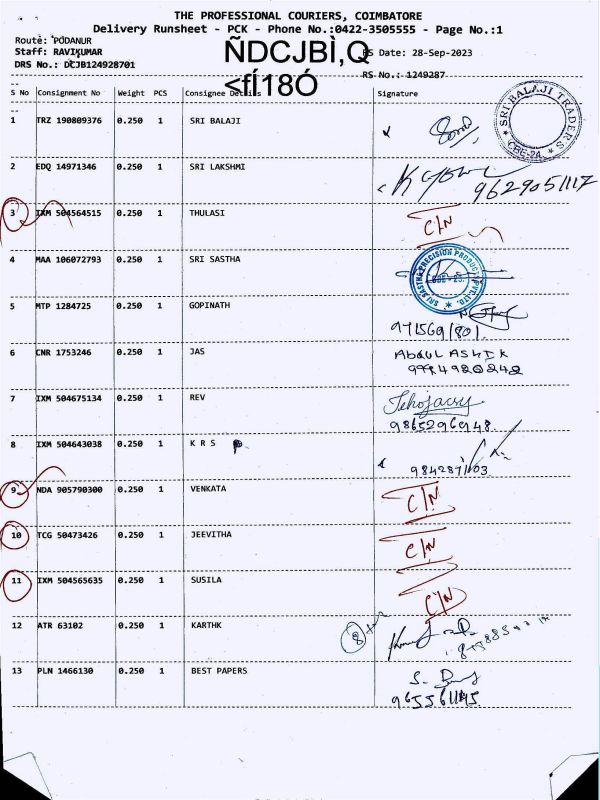 THE PROFESSIONAL COURIERS, COIMBATORE
Delivery Runsheet - PCK - Phone No.:0422-3505555 - Page No.:1
Route: PODANUR
Staff: RAVIKUMAR
DRS No.: DCJB124928701
ÑDCJBÌ,Q
<fÍ18Ó
RS Date: 28-Sep-2023
RS No.: 1249287
S No Consignment No Weight PCS Consignee Details Signature
1 TRZ 190809376 0.250 1 SRI BALAJI
SRI BALAJI TRADERS
CBE-24
2 EDQ 14971346 0.250 1 SRI LAKSHMI
9629051117
3 IXM 504564515 0.250 1 THULASI C/N
4 MAA 106072793 0.250 1 SRI SASTHA
5 MTP 1284725 0.250 1 GOPINATH
9715691801
6 CNR 1753246 0.250 1 JAS ABDUL ASHIK
7 IXM 504675134 0.250 1 REV
9865296948
8 IXM 504643038 0.250 1 K R S
9 NDA 905790300 0.250 1 VENKATA C/N
10 TCG 50473426 0.250 1 JEEVITHA C/N
11 IXM 504565635 0.250 1 SUSILA C/N
12 ATR 63102 0.250 1 KARTHK
8
13 PLN 1466130 0.250 1 BEST PAPERS